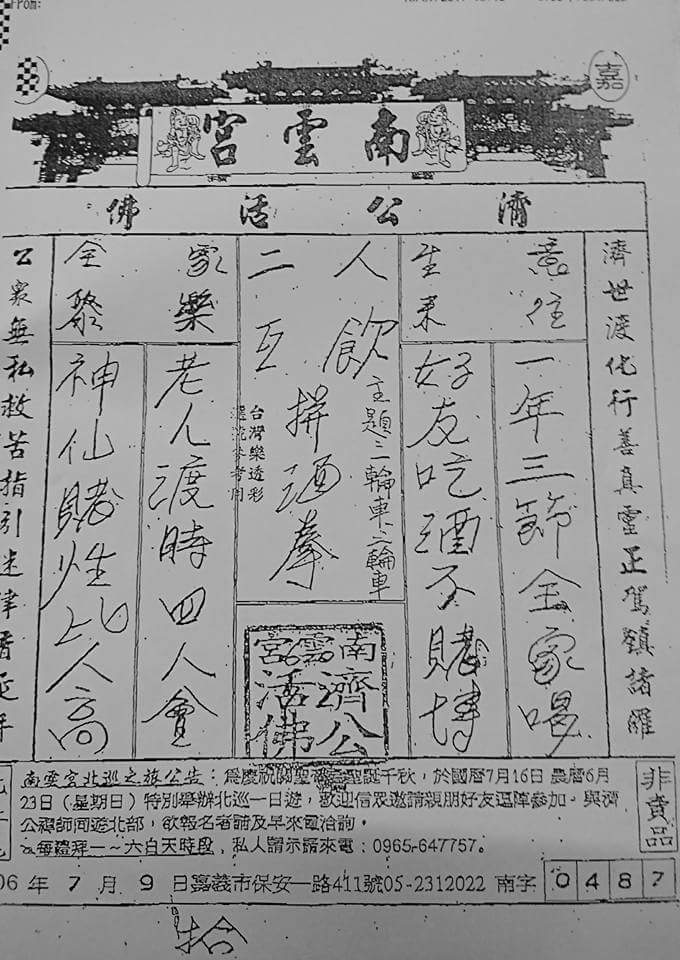 From:
嘉
南雲宮
濟公活佛
濟世渡化行善真靈正駕鎮諸羅
意往
生來
一年三節全家喝
好友吃酒不賭博
人飲
二互
拼酒拳
主題:二輪車、三輪車
台灣樂透彩
選號參考用
家樂
全聚
老人渡時四人會
神仙賭性比人高
公眾無私救苦指引迷津
南雲宮
濟公
活佛
南雲宮北巡之旅公告:為慶祝關聖帝君聖誕千秋,於國曆7月16日 農曆6月
23日(星期日)特別舉辦北巡一日遊,歡迎信眾邀請親朋好友逗陣參加。與濟
公禪師同遊北部,欲報名者請及早來電洽詢。
每禮拜一~六白天時段,私人請示請來電:0965-647757。
非賣品
06年7月9日嘉義市保安一路411號05-2312022 南字 0487
拾